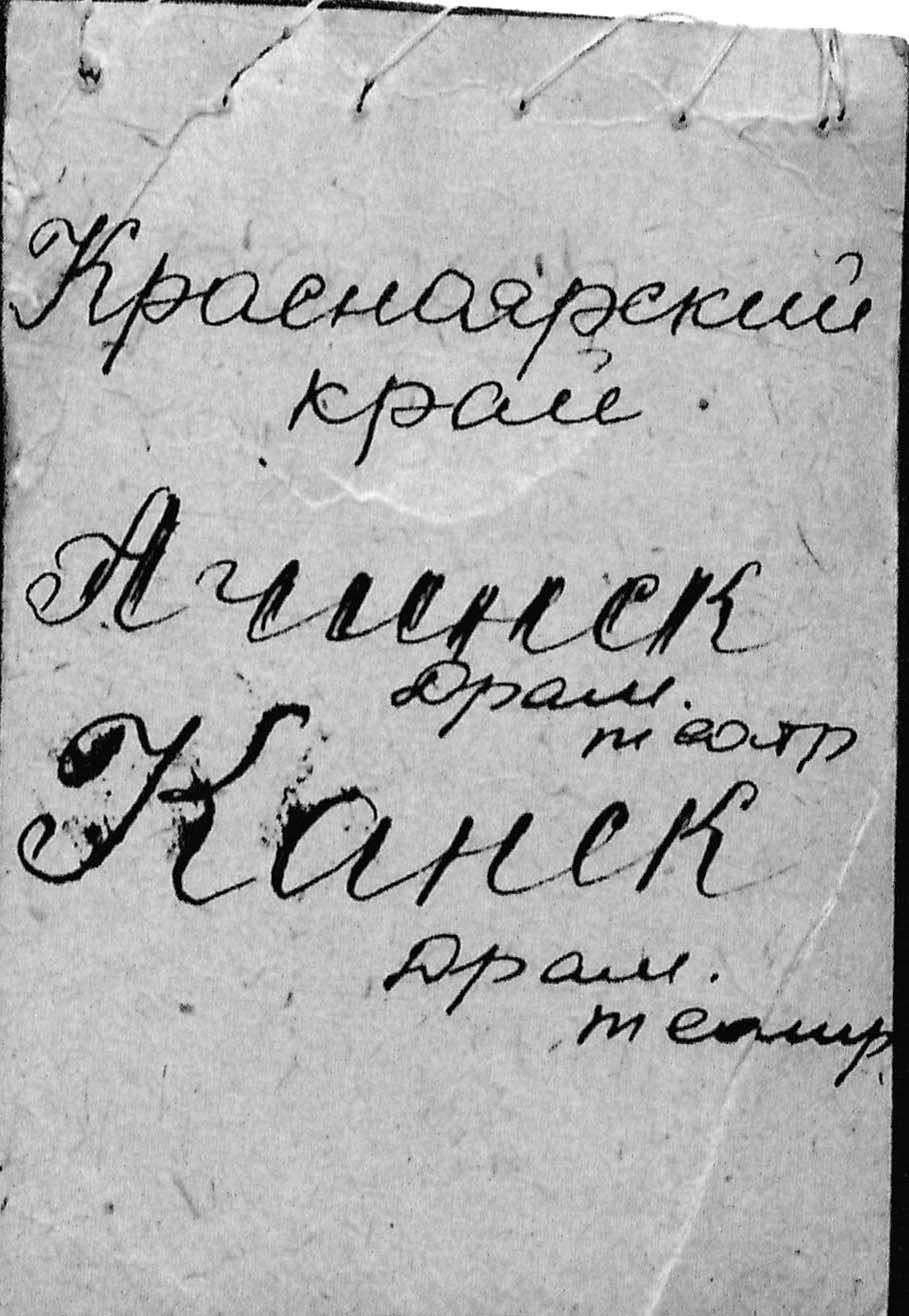 Красноярский
край
Ачинск
Драм.
театр
Канск
Драм.
театр